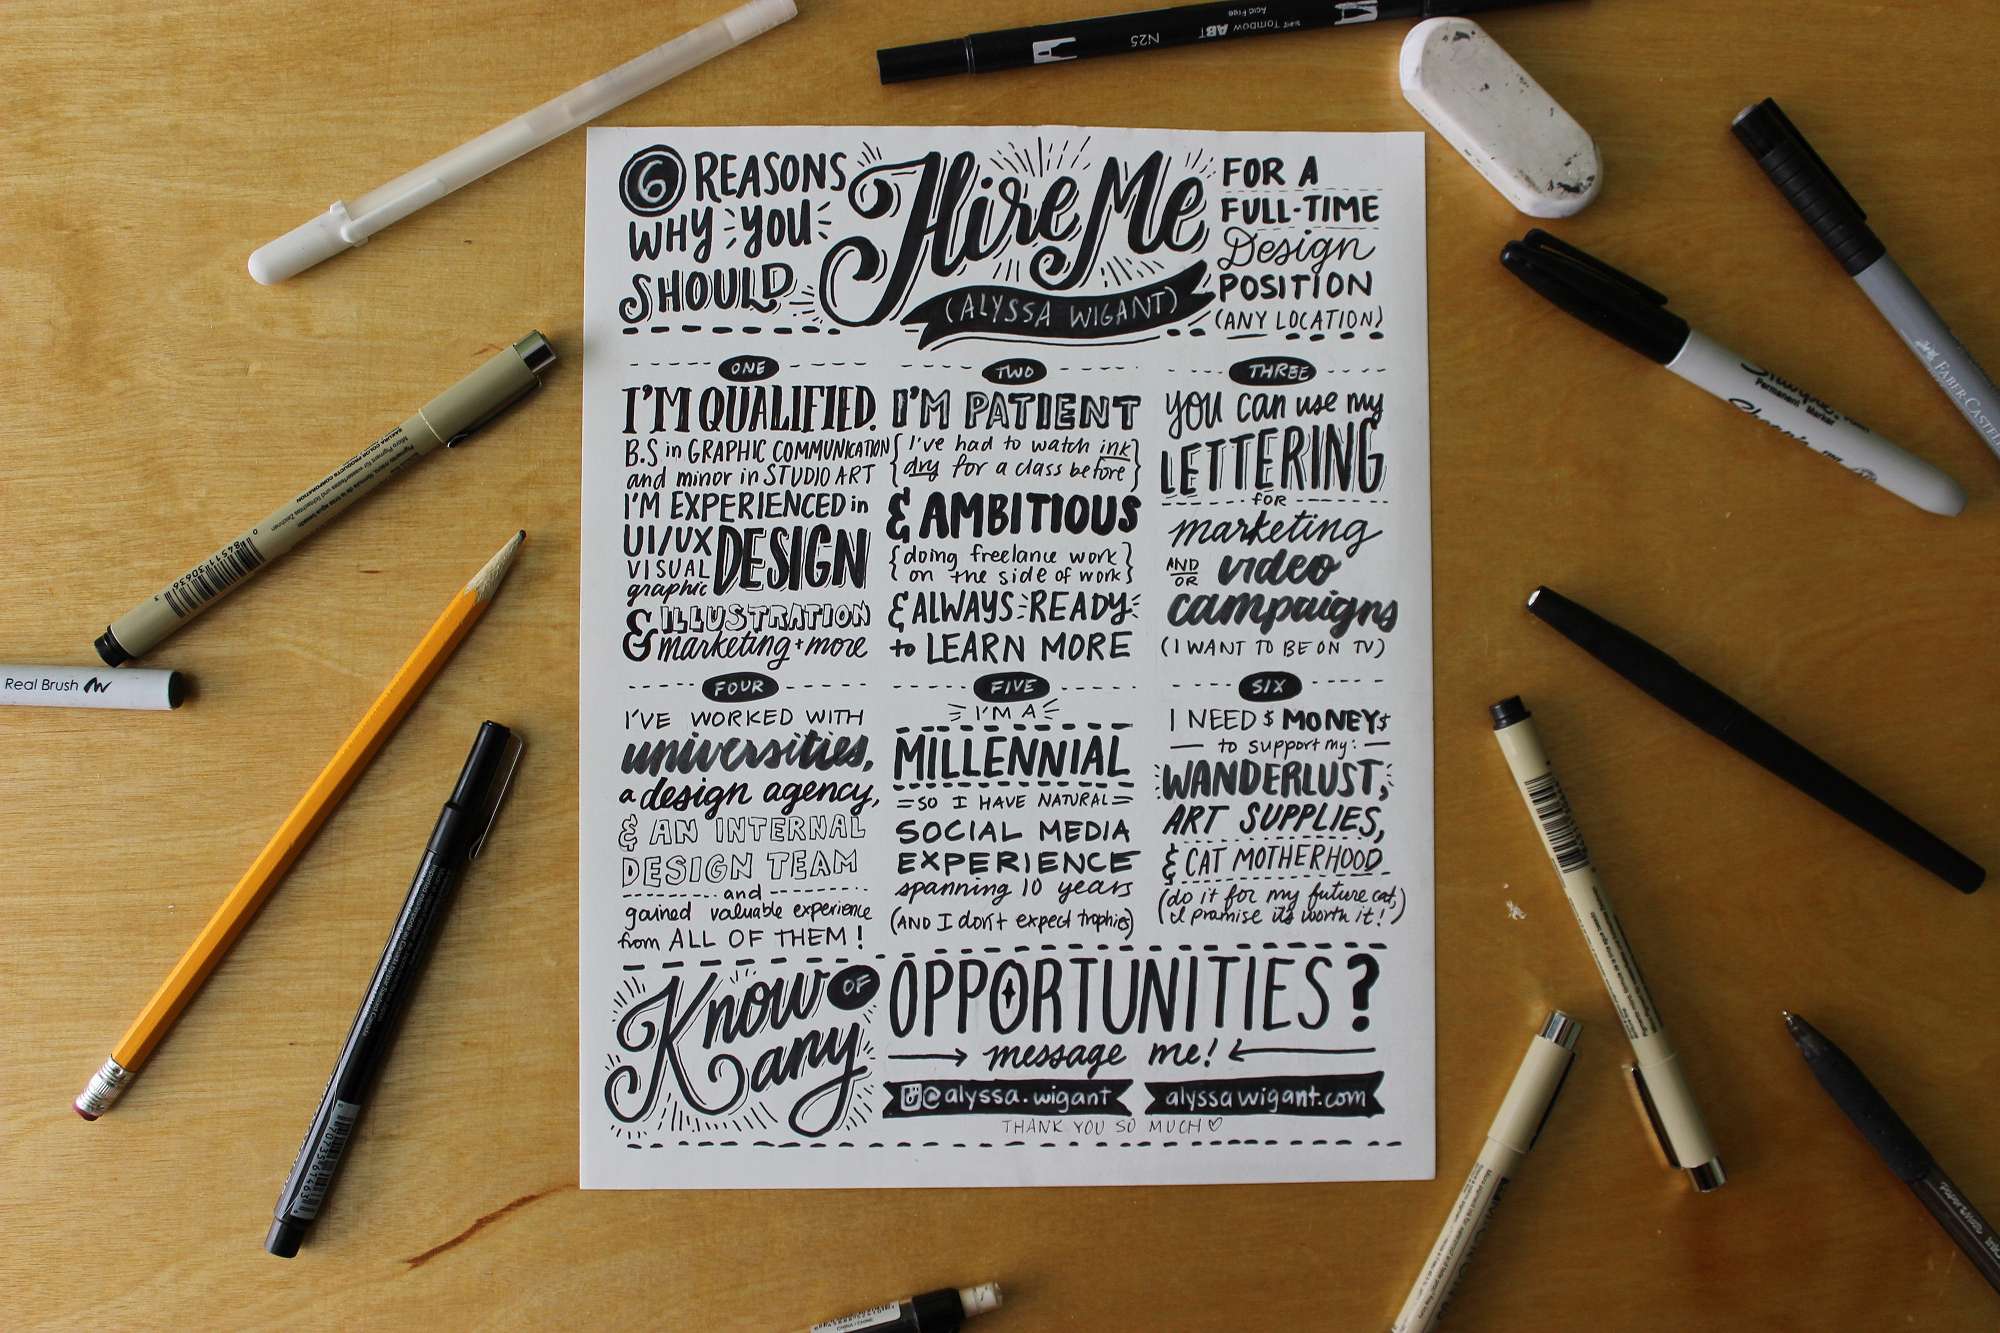 6 REASONS
WHY YOU
SHOULD
Hire Me
(ALYSSA WIGANT)
FOR A
FULL-TIME
Design
POSITION
(ANY LOCATION)
ONE
I'M QUALIFIED.
B.S in GRAPHIC COMMUNICATION
and minor in STUDIO ART
I'M EXPERIENCED in
UI/UX
VISUAL
graphic
DESIGN
& ILLUSTRATION
marketing + more
TWO
I'M PATIENT
{I've had to watch ink
dry for a class before}
& AMBITIOUS
{doing freelance work
on the side of work}
& ALWAYS READY
to LEARN MORE
THREE
you can use my
LETTERING
FOR
marketing
AND
OR
video
campaigns
(I WANT TO BE ON TV)
FOUR
I'VE WORKED WITH
universities,
a design agency,
& AN INTERNAL
DESIGN TEAM
and
gained valuable experience
from ALL OF THEM!
FIVE
I'M A
MILLENNIAL
SO I HAVE NATURAL
SOCIAL MEDIA
EXPERIENCE
spanning 10 years
(AND I don't expect trophies)
SIX
I NEED $MONEY$
to support my:
WANDERLUST,
ART SUPPLIES,
& CAT MOTHERHOOD
(do it for my future cat,
I promise it's worth it!)
Know OF
any
OPPORTUNITIES?
message me!
@alyssa.wigant
alyssawigant.com
THANK YOU SO MUCH ♡
N25
Tombow ABT
Acid Free
Real Brush
Permanent Marker
FABER-CASTELL